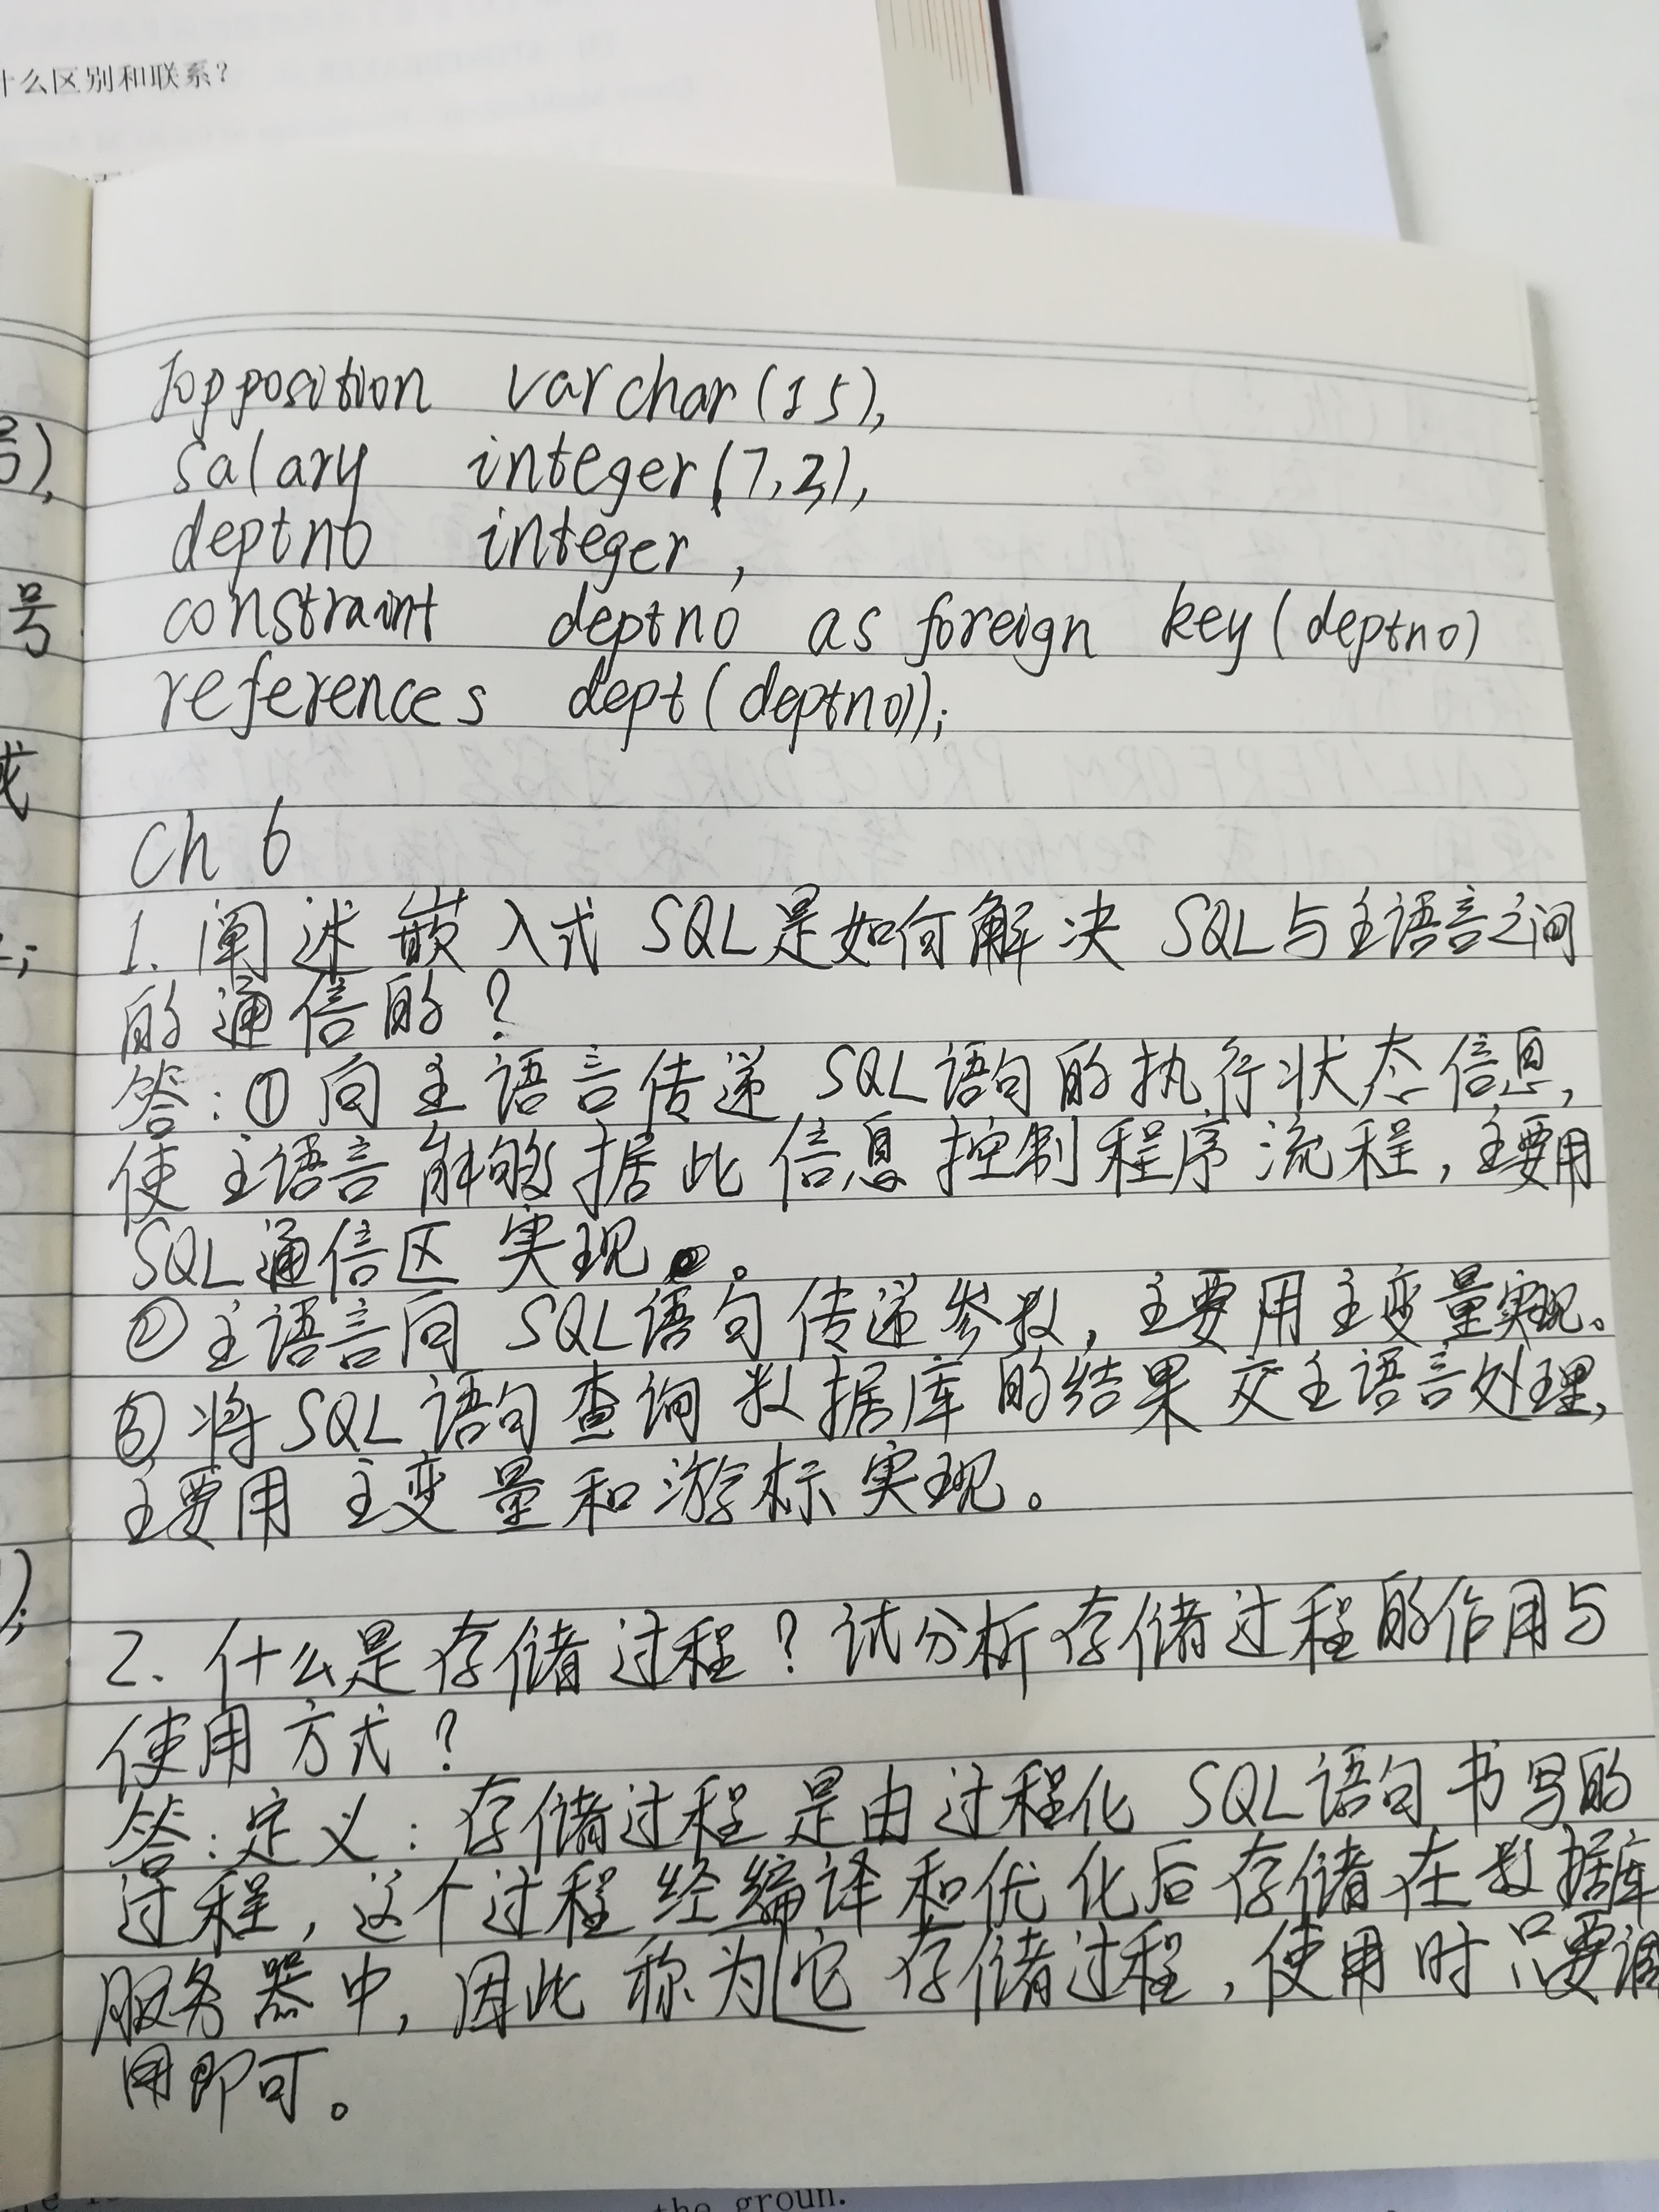 什么区别和联系?
Jopposition varchar(15),
salary integer(7,2),
deptno integer,
constraint deptno as foreign key(deptno)
references dept(deptno));
Ch 6
1. 阐述嵌入式 SQL是如何解决 SQL与主语言之间
的通信的?
答:①向主语言传递 SQL语句的执行状态信息,
使主语言能够据此信息控制程序流程,主要用
SQL通信区实现。
②主语言向 SQL语句传递参数,主要用主变量实现。
③将SQL语句查询数据库的结果交主语言处理,
主要用主变量和游标实现。
2. 什么是存储过程?试分析存储过程的作用与
使用方式?
答:定义:存储过程是由过程化 SQL语句书写的
过程,这个过程经编译和优化后存储在数据库
服务器中,因此称为它存储过程,使用时只要调
用即可。
号),
号
或
);
the groun.